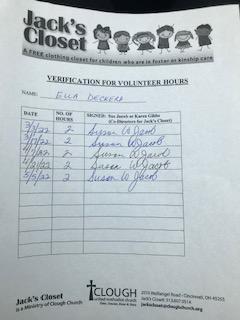 Jack's
Closet
A FREE clothing closet for children who are in foster or kinship care
VERIFICATION FOR VOLUNTEER HOURS
NAME: ELLA DECKERS
DATE NO. OF HOURS SIGNED: Sue Jacob or Karen Gibbs
(Co-Directors for Jack's Closet)
2 Susan W Jacob
2 Susan W Jacob
2 Susan W Jacob
2 Susan W Jacob
5/5/22 2 Susan W Jacob
Jack's Closet
is a Ministry of Clough Church
CLOUGH
united methodist church
2010 Wolfangel Road • Cincinnati, OH 45255
Jack's Closet:
jackscloset@cloughchurch.org